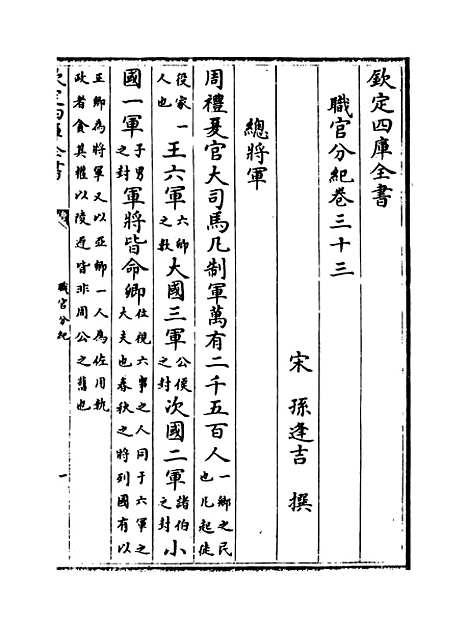 欽定四庫全書
職官分紀卷三十三
宋 孫逢吉 撰
總將軍
周禮夏官大司馬凡制軍萬有二千五百人一鄉之民也凡起徒
役家一人也王六軍六鄉之數大國三軍公侯之封次國二軍諸伯之封小
國一軍子男之封軍將皆命卿任視六事之人同于六軍之大夫也春秋之將列國有以
王卿為將軍又以亞卿一人為佐用執政者食其權以陵近皆非周公之舊也
欽定四庫全書 職官分紀 一